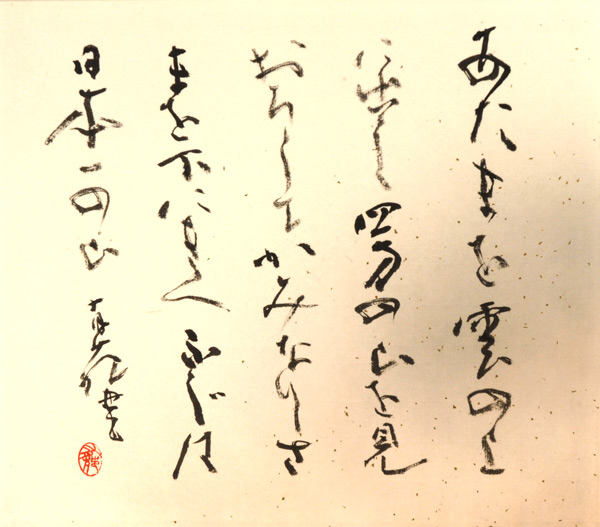 あたまを雲の上
に出し四方の山を見
おろしてかみなりさ
まを下にきくふじは
日本一の山
書